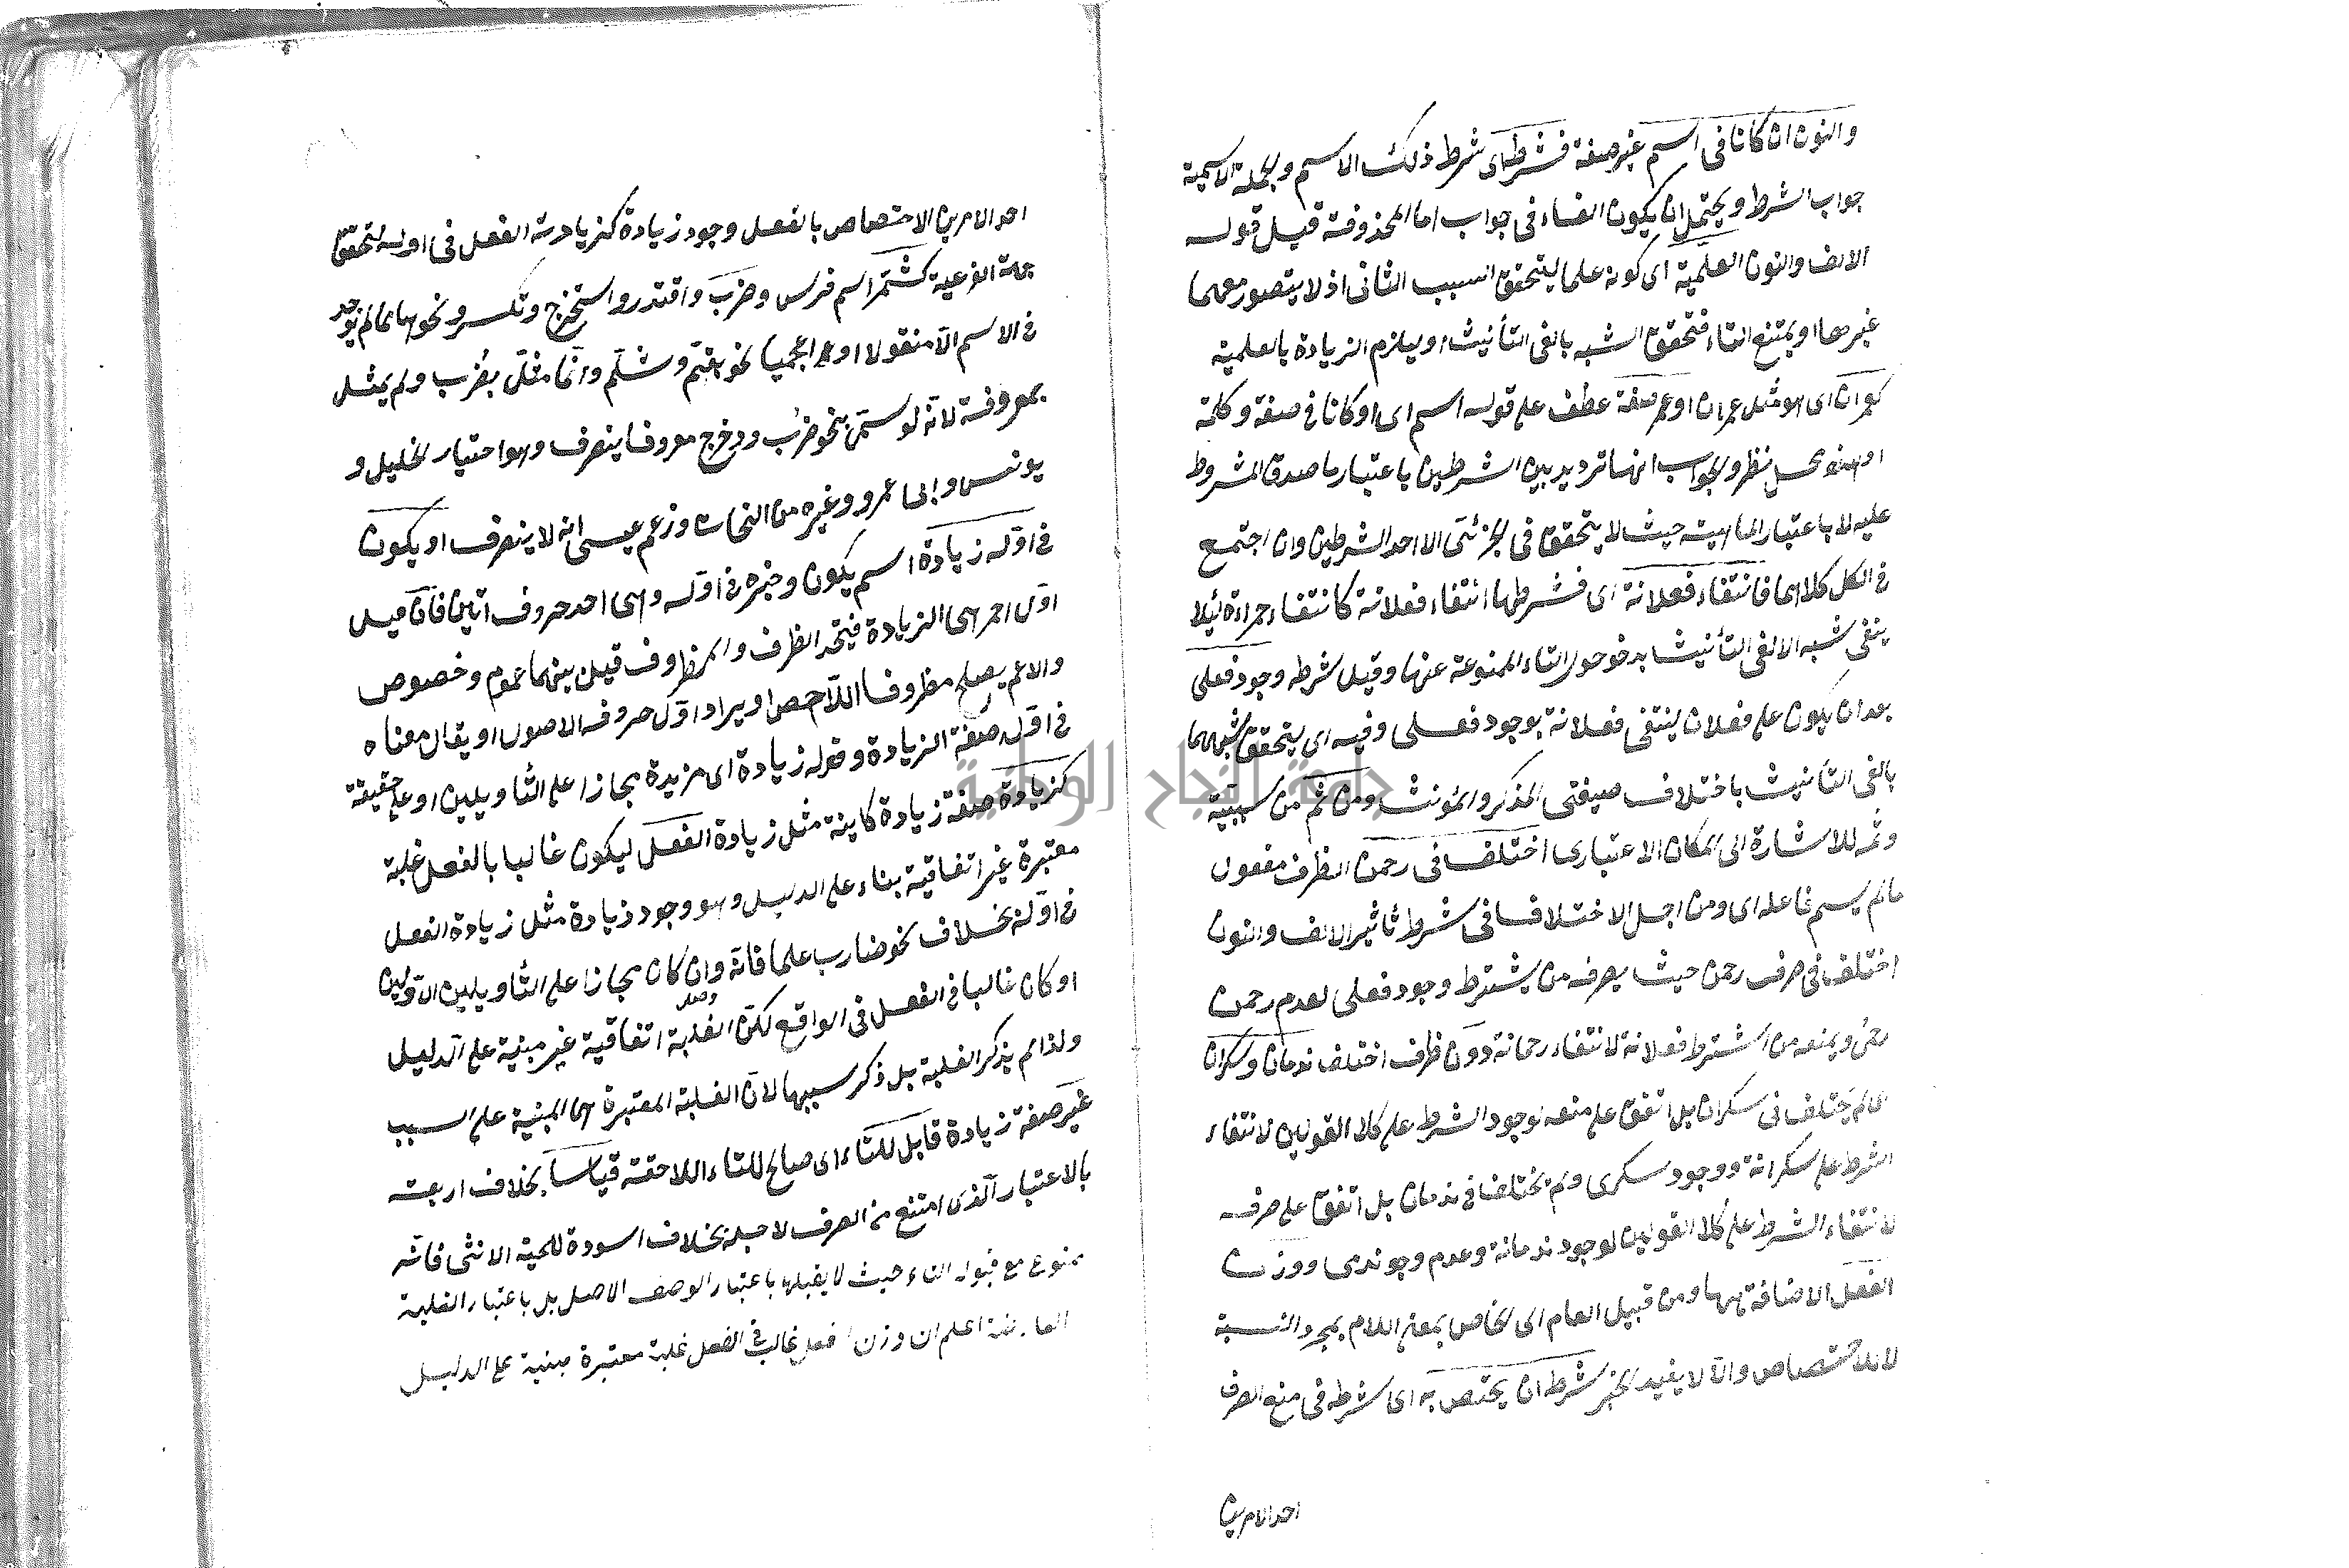 والنون ان كانا فى اسم غير صفة فشرطه اى شرط ذلك الاسم والجملة الاسمية
جواب الشرط ويحتمل ان يكون الفاء فى جواب اما المحذوفة قيل قوله
الالف والنون العلمية اى كونه علما ليتحقق السبب الثانى اذ لا يتصور معهما
غيرها او يمتنع التاء فتحقق الشبه بالفى التأنيث او يلزم الزيادة بالعلمية
كعمران اى هو مثل عمران او غير صفة عطف على قوله اسم اى او كانا فى صفة وكلمة
او هنا محل نظر والجواب انها ترديد بين الشرطين باعتبار ما صدق المشروط
عليه لا باعتبار الماهية حيث لا يتحقق فى الجزئى الا احد الشرطين وان اجتمع
فى الكل كلاهما فانتفاء فعلانة اى فشرطها انتفاء فعلانة كانتفاء حمراءة لئلا
ينفى شبه الالفى التأنيث بدخول التاء الممنوعة عنها وقيل شرطه وجود فعلى
بعد ان يكون على فعلان لينتفى فعلانة بوجود فعلى وفيه اى يتحقق شبههما
بالفى التأنيث باختلاف صيغتى المذكر والمؤنث ومن ثم من سببية
وثمه للاشارة الى المكان الاعتبارى اختلف فى رحمن الظرف مفعول
مالم يسم فاعله اى ومن اجل الاختلاف فى شرط تأثير الالف والنون
اختلف فى صرف رحمن حيث يصرفه من يشترط وجود فعلى لعدم رحمن
رحمى ويمنعه من اشترط فعلانة لانتفاء رحمانة دون ظرف اختلف ندمان وسكران
اى لم يختلف فى سكران بل اتفق على منعه لوجود الشرط على كلا القولين لانتفاء
الشرط على سكرانة ووجود سكرى ولم يختلف فى ندمان بل اتفق على صرفه
لانتفاء الشرط على كلا القولين لوجود ندمانة وعدم وجو ندمى ووزن
الفعل الاضافة ههنا ومن قبيل العام الى الخاص بمعنى اللام بمجرد النسبة
لا للاختصاص والا لا يفيد الخبر شرطه ان يختص به اى شرطه فى منع الصرف
احد الامرين
احد الامرين الاختصاص بالفعل وجود زيادة كزيادته الفعل فى اوله لتحقق
جهة الفرعية كشمر اسم فرس وضرب واقتدر واستخرج وتكسر ونحوها مما لم يوجد
فى الاسم الا منقولا او اعجميا نحو بقم وشلم وانما مثل بضرب ولم يمثل
بمعروفة لانه لو سمى بنحو ضرب ودحرج معروفا ينصرف وهو اختيار الخليل و
يونس وابى عمرو وغيره من النحات وزعم عيسى انه لا ينصرف او يكون
فى اوله زيادة اسم يكون وخبره فى اوله وهى احد حروف اتين فان قيل
اول احمر هى الزيادة فيتحد الظرف والمظروف قيل بينهما عموم وخصوص
والاعم يصلح مظروفا للاخص او يراد اول حروفه الاصول او يقال معناه
فى اول صفة الزيادة وقوله زيادة اى مزيدة مجازا على التأويلين او على حقيقة
كزيادة صفة زيادة كاينة مثل زيادة الفعل ليكون غالبا بالفعل غلبة
معتبرة غير اتفاقية بناء على الدليل وهو وجود زيادة مثل زيادة الفعل
فى اوله بخلاف نحو ضارب علما فانه وان كان مجازا على التأويلين الاولين
او كان غالبا فى الفعل فى الواقع لكن الغلبة اتفاقية غير مبنية على الدليل
ولذا لم يذكر الغلبة بل ذكر سببها لان الغلبة المعتبرة هى المبنية على السبب
غير صفة زيادة قابل للتاء اى صالح للتاء اللاحقة قياسا بخلاف اربعة
بالاعتبار الذى امتنع من الصرف لاجله بخلاف اسودة للحية الانثى فانه
ممنوع مع قبوله التاء حيث لا يقبلها باعتبار الوصف الاصل بل باعتبار الغلبة
العارضة اعلم ان وزن افعل غالب فى الفعل غلبة معتبرة مبنية على الدليل
جامعة النجاح الوطنية